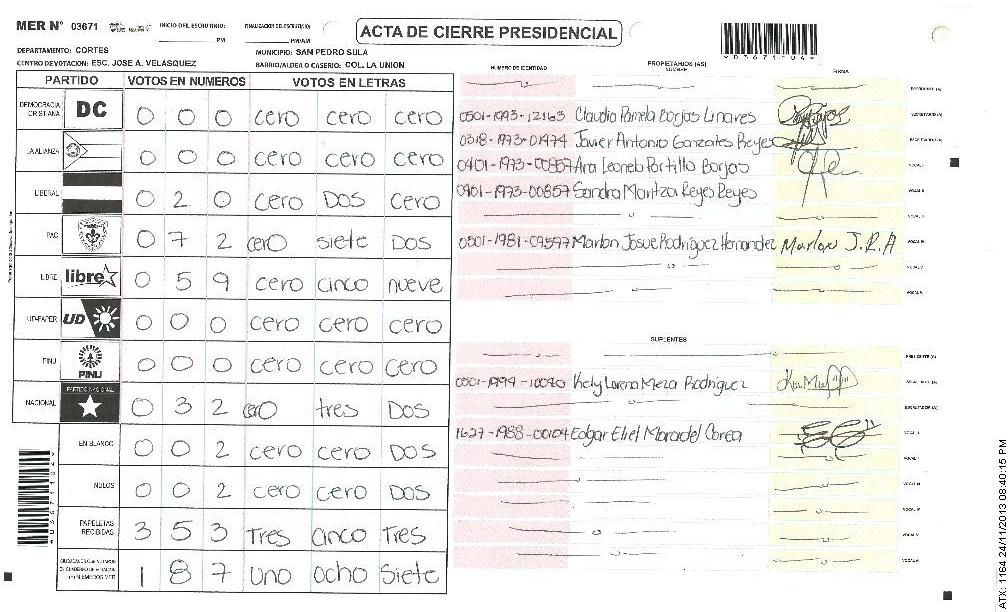 MER N° 03671
INICIO DEL ESCRUTINIO:
PM
FINALIZACION DEL ESCRUTINIO:
PM/AM
ACTA DE CIERRE PRESIDENCIAL
*03671*04*
DEPARTAMENTO: CORTES
MUNICIPIO: SAN PEDRO SULA
CENTRO DE VOTACION: ESC. JOSE A. VELASQUEZ
BARRIO/ALDEA O CASERIO: COL. LA UNION
PARTIDO VOTOS EN NUMEROS VOTOS EN LETRAS
DEMOCRACIA CRISTIANA DC 0 0 0 cero cero cero
LA ALIANZA 0 0 0 cero cero cero
LIBERAL 0 2 0 cero DOS cero
PAC 0 7 2 cero siete DOS
LIBRE libre 0 5 9 cero cinco nueve
UD-FAPER UD 0 0 0 cero cero cero
PINU PINU 0 0 0 cero cero cero
NACIONAL PARTIDO NACIONAL 0 3 2 cero tres DOS
EN BLANCO 0 0 2 cero cero DOS
NULOS 0 0 2 cero cero DOS
PAPELETAS RECIBIDAS 3 5 3 Tres cinco Tres
1 8 7 uno ocho siete
NUMERO DE IDENTIDAD
PROPIETARIOS (AS)
NOMBRE
FIRMA
PRESIDENTE (A)
0501-1993-12163 Claudia Pamela Borjas Linares SECRETARIO (A)
0318-1973-01974 Javier Antonio Gonzales Reyes ESCRUTADOR (A)
0401-1973-00857 Ana Leonela Portillo Borjas VOCAL I
0901-1973-00857 Sandra Maritza Reyes Reyes VOCAL II
VOCAL III
0501-1981-09597 Marlon Josue Rodriguez Hernandez Marlon J.R.A VOCAL IV
VOCAL V
VOCAL VI
SUPLENTES
PRESIDENTE (A)
0501-1994-10040 Kiely Lorena Meza Rodriguez SECRETARIO (A)
ESCRUTADOR (A)
1627-1988-00104 Edgar Eliel Moradel Correa VOCAL I
VOCAL II
VOCAL III
VOCAL IV
VOCAL V
VOCAL VI
ATX: 1164 24/11/2013 08:40:15 PM